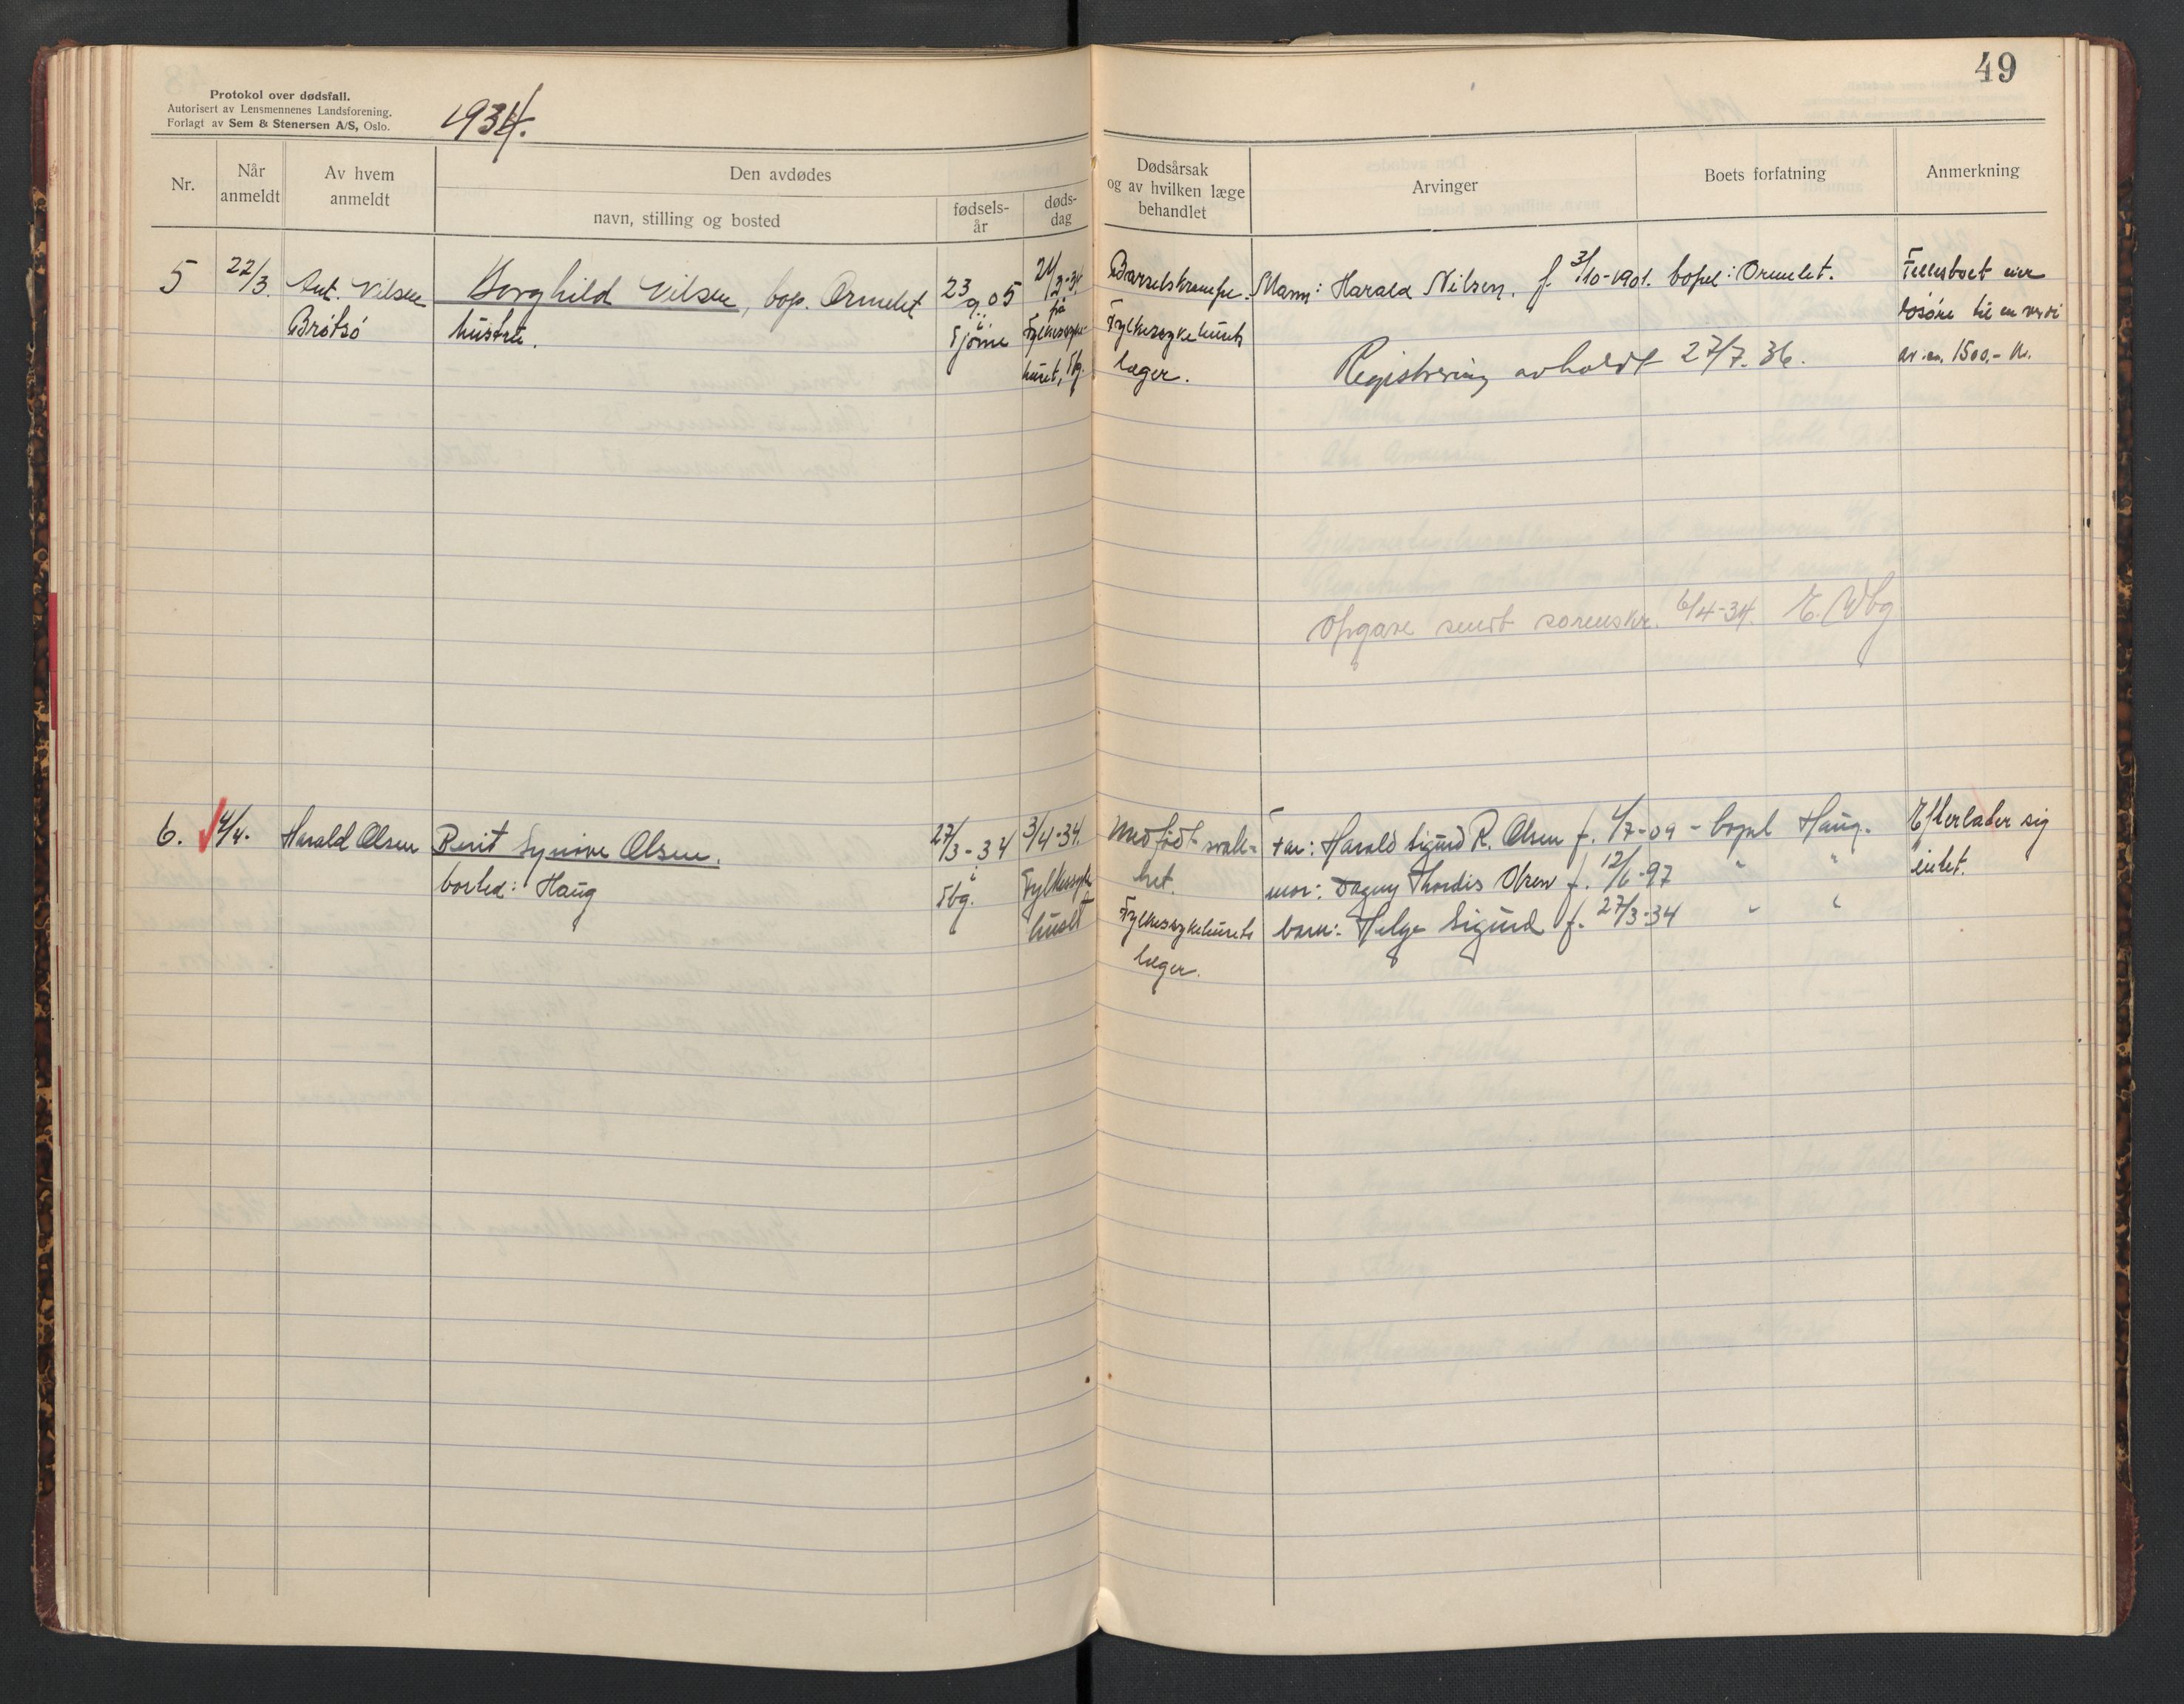 49
Protokol over dødsfall.
Autorisert av Lensmennenes Landsforening.
Forlagt av Sem & Stenersen A/S, Oslo.
1934.
Nr.
Når anmeldt
Av hvem anmeldt
Den avdødes
navn, stilling og bosted
fødsels-år
døds-dag
Dødsårsak og av hvilken læge behandlet
Arvinger
Boets forfatning
Anmerkning
5 22/3. Ant. Nilsen Borghild Nilsen, bop. Ormelet
Brøtsø hustru.
23/9 05
i
Tjøme
21/3-34
på
Fylkessyke-
huset, Tbg.
Barselskrampe.
Fylkessykehusets
læger.
Mann: Harald Nilsen. f. 3/10-1901. bopel: Ormelet.
Registrering avholdt 27/7.36.
Fellesboet eier
løsøre til en verdi
av ca. 1500,- kr.
Opgave sendt sorenskr. 6/4-34. E. Wbg
6. 4/4. Harald Olsen Berit Synøve Olsen.
bosted: Haug
27/3-34
i
Tbg.
3/4-34.
Fylkessyke
huset
Medfødt svak-
het.
Fylkessykehusets
læger.
Far: Harald Sigurd R. Olsen f. 4/7-09 - bopel Haug.
mor: Dagny Thordis Olsen f. 12/6-97 " "
barn: Helge Sigurd f. 27/3-34 " "
Efterlater sig
intet.